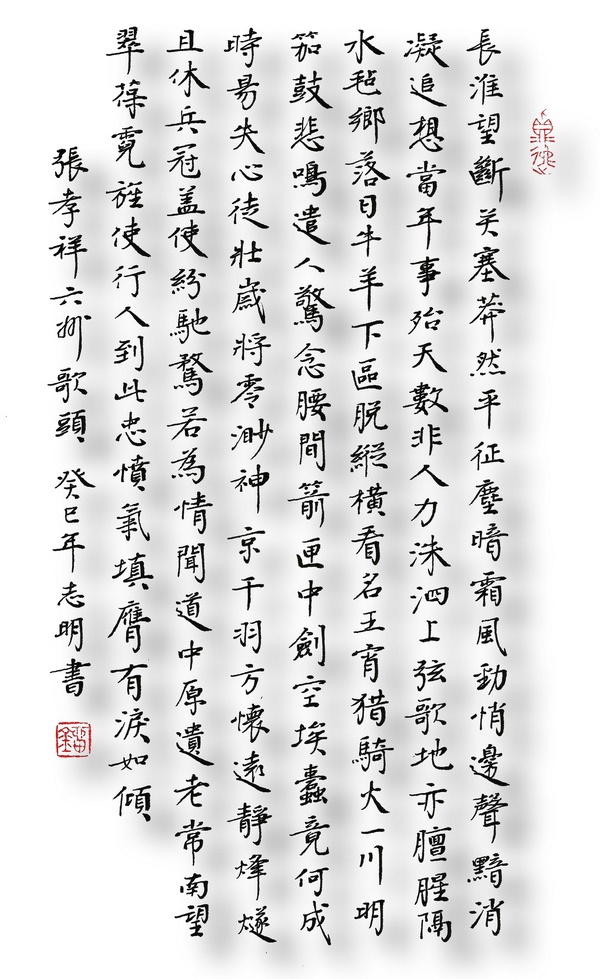 長淮望斷关塞莽然平征塵暗霜風勁悄邊聲黯消
凝追想當年事殆天數非人力洙泗上弦歌地亦膻腥隔
水毡鄉落日牛羊下區脱縱橫看名王宵猎騎火一川明
笳鼓悲鳴遣人驚念腰間箭匣中劍空埃蠹竟何成
時易失心徒壯歲將零渺神京干羽方懷遠靜烽燧
且休兵冠盖使紛馳騖若為情聞道中原遺老常南望
翠葆霓旌使行人到此忠憤氣填膺有淚如傾
張孝祥六州歌頭 癸巳年志明書